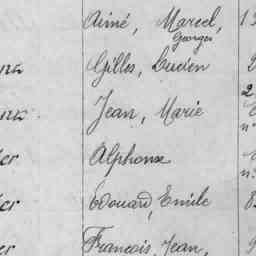 Aimé, Marcel,
Georges
Gilles, Lucien
Jean, Marie
Alphonse
Edouard, Emile
François, Jean,